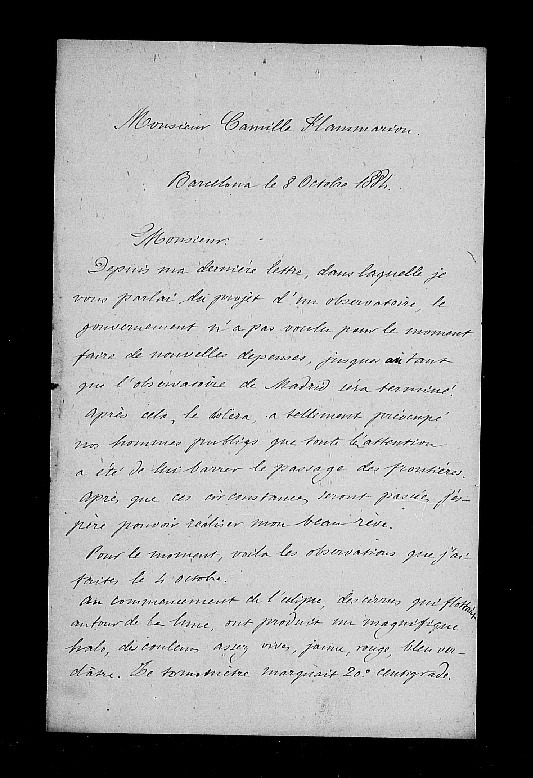 Monsieur Camille Flammarion
Barcelona le 8 Octobre 1884.
Monsieur:
Depuis ma dernière lettre, dans laquelle je
vous parlai du projet d'un observatoire, le
gouvernement n'a pas voulu pour le moment
faire de nouvelles depenses, jusques au tant
que l'observatoire de Madrid sera terminé.
Après cela, le colera, a tellement préocupé
nos hommes publiqs que toute l'attention
a été de lui barrer le passage des frontières.
Après que ces circonstances seront passées, j'es-
père pouvoir réaliser mon beau rêve.
Pour le moment, voila les observations que j'ai
faites le 4 octobre.
Au commancement de l'eclipse, des cirrus qui flottait
autour de la lune, ont produit un magnifique
halo, de couleurs assez vives, jaune, rouge, bleu ver-
dâtre. Le termometre marquait 20° centigrade.